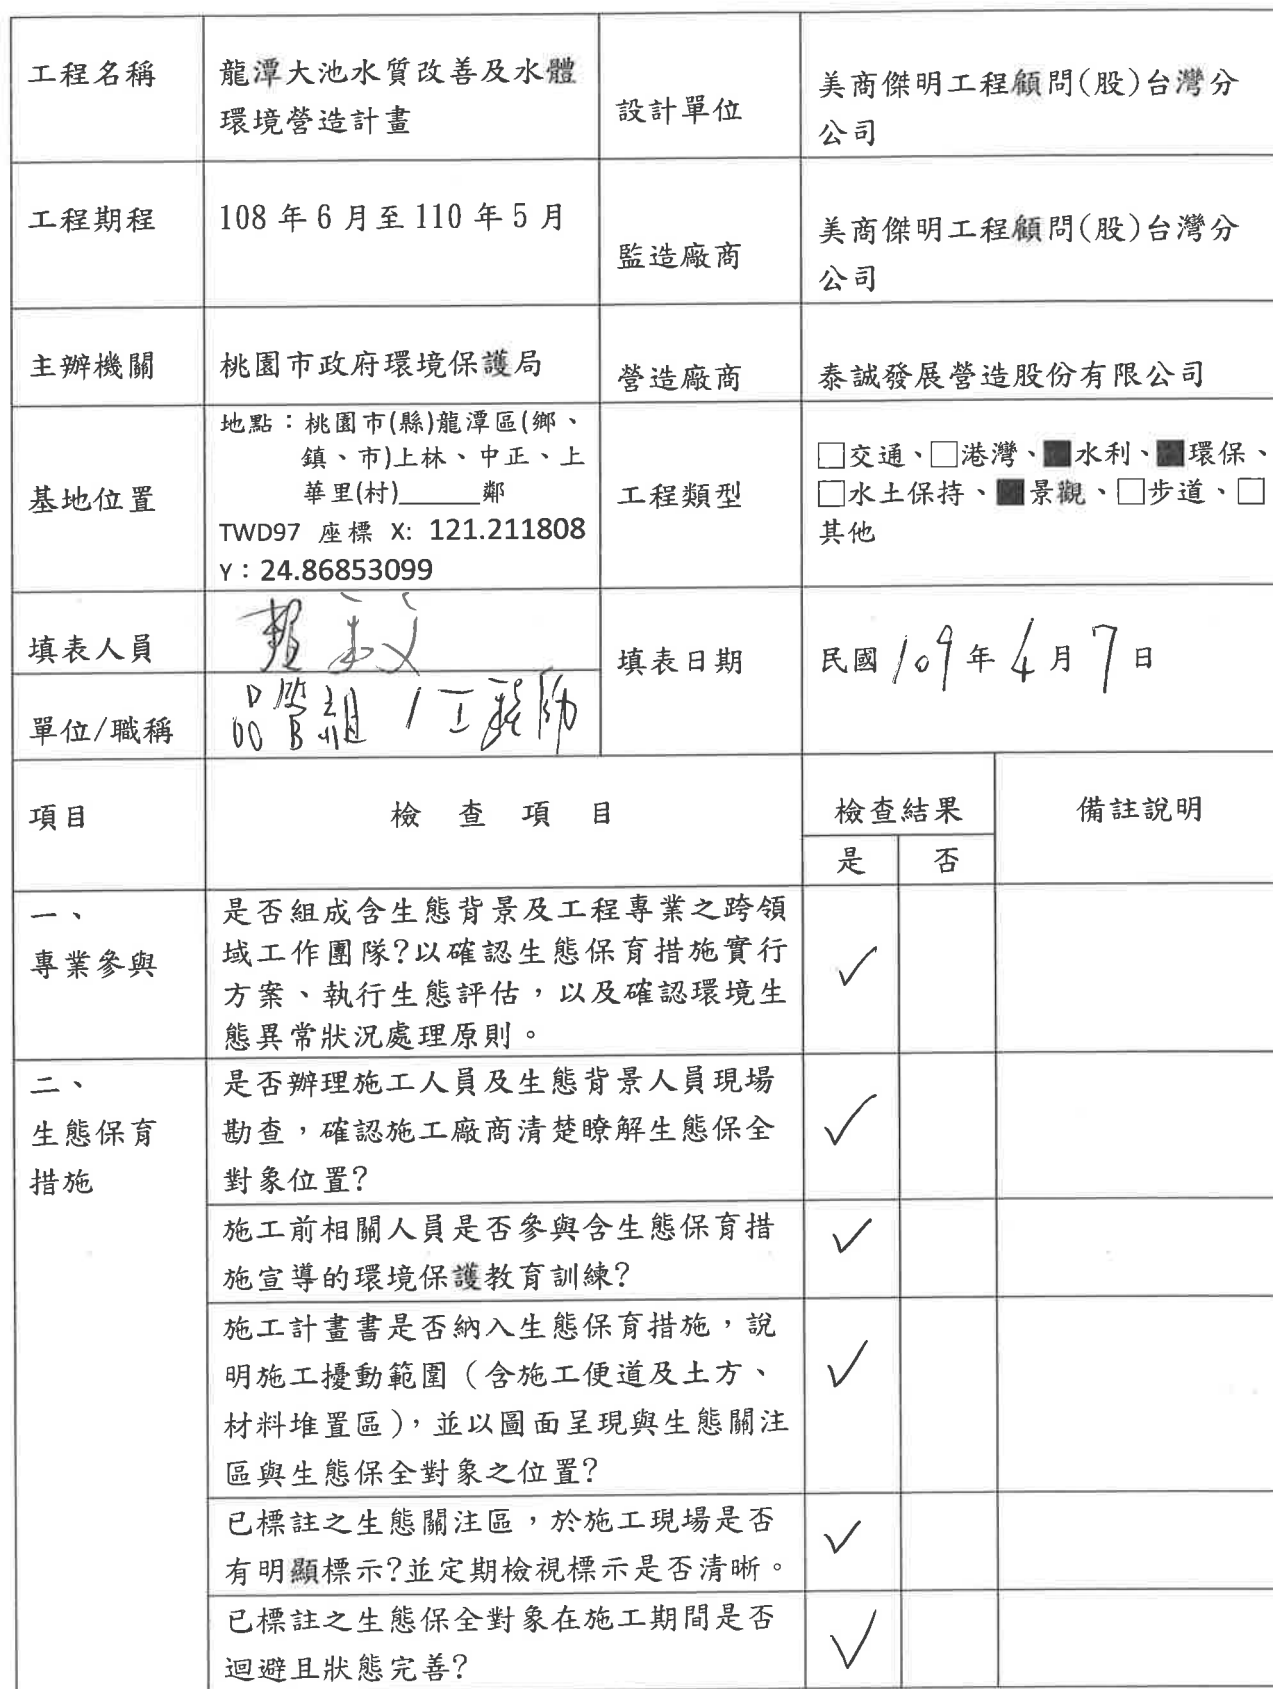 工程名稱
龍潭大池水質改善及水體
環境營造計畫
設計單位
美商傑明工程顧問(股)台灣分
公司
工程期程
108 年 6 月至 110 年 5 月
監造廠商
美商傑明工程顧問(股)台灣分
公司
主辦機關
桃園市政府環境保護局
營造廠商
泰誠發展營造股份有限公司
基地位置
地點：桃園市(縣)龍潭區(鄉、
鎮、市)上林、中正、上
華里(村)______鄰
TWD97 座標 X: 121.211808
Y：24.86853099
工程類型
□交通、□港灣、■水利、■環保、
□水土保持、■景觀、□步道、□
其他
填表人員
賴 文
填表日期
民國 109 年 4 月 7 日
單位/職稱
品管組 / 工程師
項目
檢 查 項 目
檢查結果
備註說明
是
否
一、
專業參與
是否組成含生態背景及工程專業之跨領
域工作團隊?以確認生態保育措施實行
方案、執行生態評估，以及確認環境生
態異常狀況處理原則。
✓
二、
生態保育
措施
是否辦理施工人員及生態背景人員現場
勘查，確認施工廠商清楚瞭解生態保全
對象位置?
✓
施工前相關人員是否參與含生態保育措
施宣導的環境保護教育訓練?
✓
施工計畫書是否納入生態保育措施，說
明施工擾動範圍（含施工便道及土方、
材料堆置區），並以圖面呈現與生態關注
區與生態保全對象之位置?
✓
已標註之生態關注區，於施工現場是否
有明顯標示?並定期檢視標示是否清晰。
✓
已標註之生態保全對象在施工期間是否
迴避且狀態完善?
✓